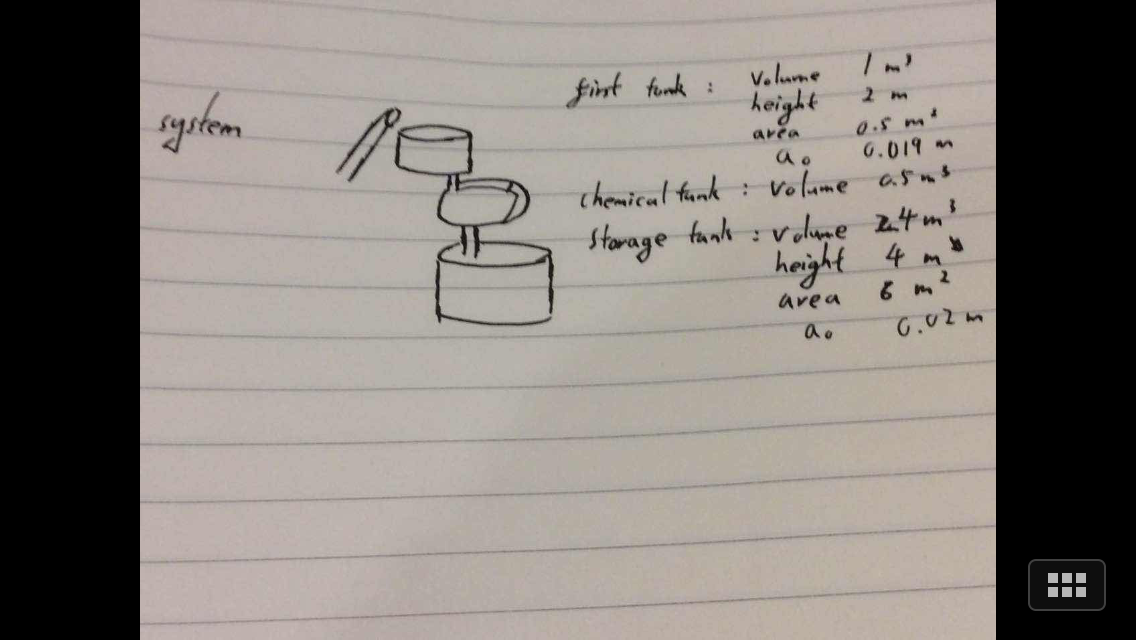 system
first tank : volume 1 m³
height 2 m
area 0.5 m²
a₀ 0.019 m
chemical tank : volume 0.5 m³
storage tank : volume 24 m³
height 4 m
area 6 m²
a₀ 0.02 m